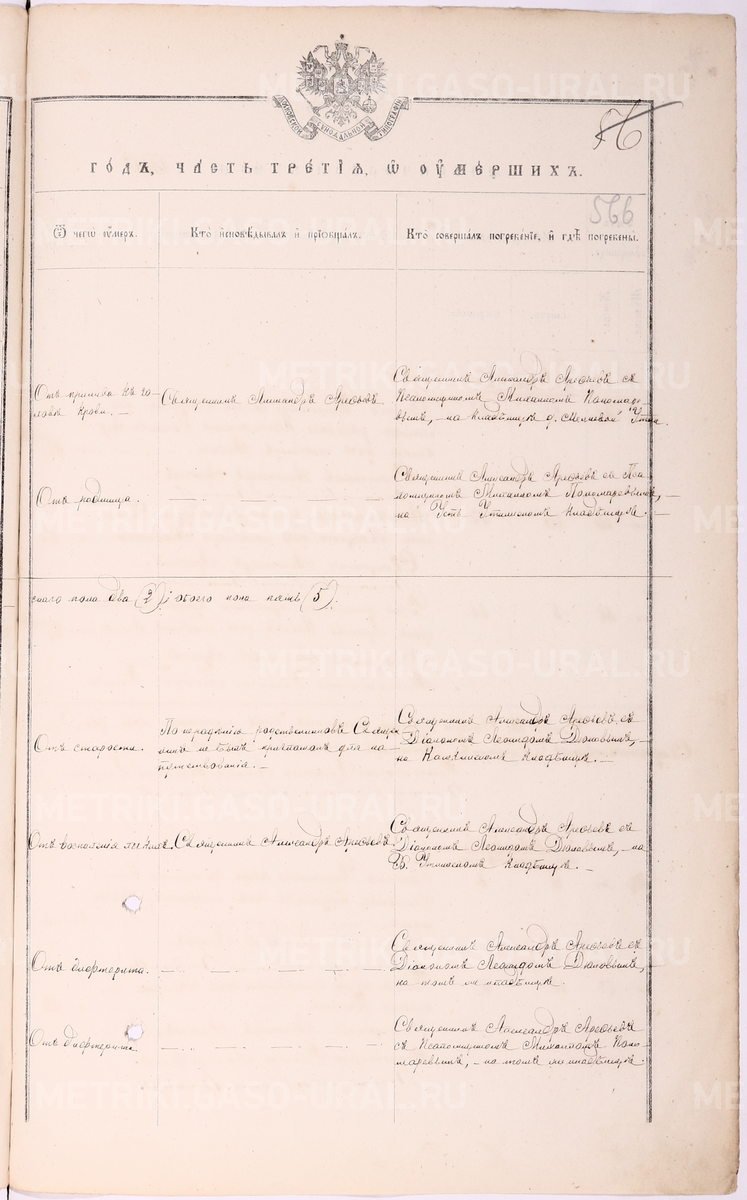 МОСКОВСКОЙ СѴНОДАЛЬНОЙ ТИПОГРАФІИ
56
ГОДЪ, ЧАСТЬ ТРЕТІЯ, Ѿ ОУМЕРШИХЪ.
566
Ѿ чегѡ оумеръ.
Кто исповѣдывалъ и пріобщалъ.
Кто совершалъ погребеніе, и гдѣ погребены.
Отъ прилива къ го-
ловѣ крови.
Священникъ Александръ Арефьевъ
Священникъ Александръ Арефьевъ съ
Псаломщикомъ Пономаре-
вымъ, на кладбищѣ д.
Отъ родимца.
Священникъ Александръ Арефьевъ съ Пса-
ломщикомъ Пономаревымъ,
на Усть кладбищѣ.
скаго пола два (2); обоего пола пять (5).
Отъ старости.
По нерадѣнію родственниковъ Священ-
никъ не былъ приглашонъ для на-
путствованія.
Священникъ Александръ Арефьевъ съ
Діакономъ Леонидомъ
на кладбищѣ.
Отъ воспаленія
Священникъ Александръ Арефьевъ
Священникъ Александръ Арефьевъ съ
Діакономъ Леонидомъ на
У. кладбищѣ.
Отъ дифтерита.
Священникъ Александръ Арефьевъ съ
Діакономъ Леонидомъ
на томъ же кладбищѣ.
Отъ дифтерита
Священникъ Александръ Арефьевъ
съ Псаломщикомъ Поно-
маревымъ, на томъ же кладбищѣ.
METRIKI.GASO-URAL.RU